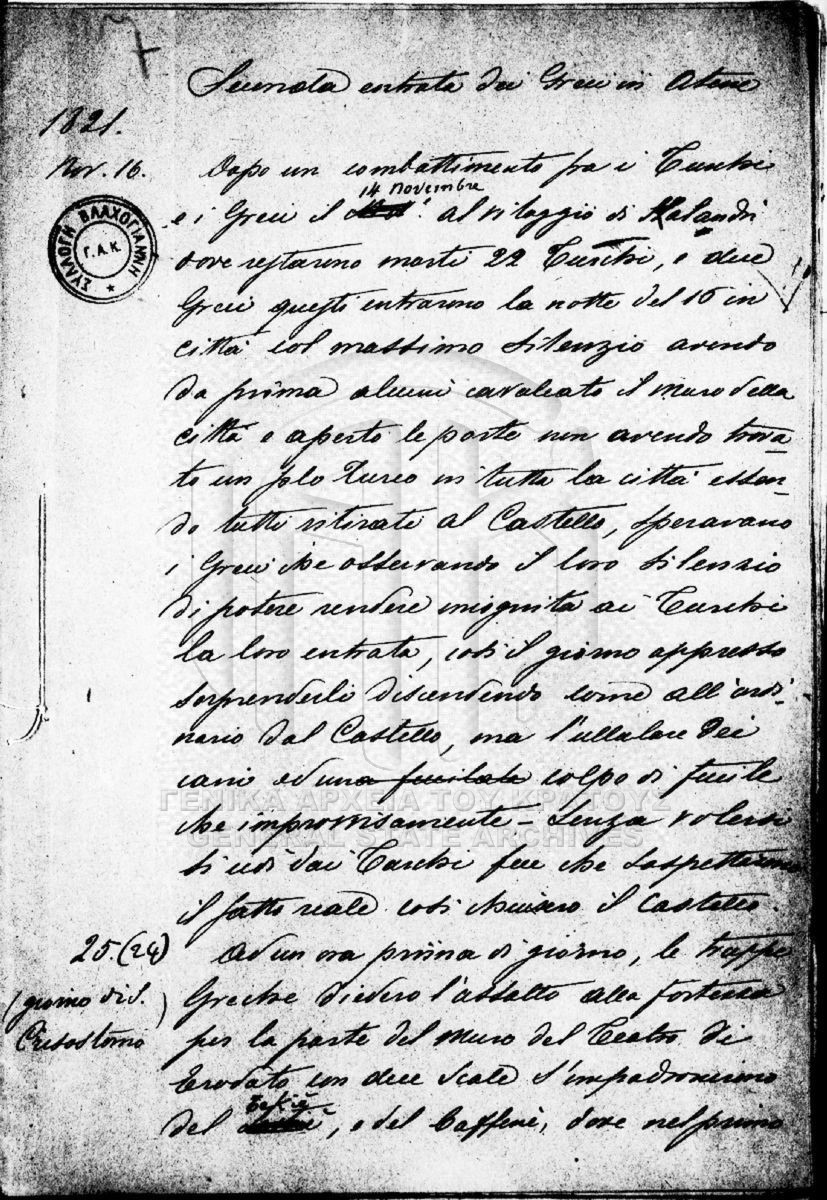 7
Seconda entrata dei Greci in Atene
1821.
Nov. 16. Dopo un combattimento fra i Turchi
14 Novembre
e i Greci il al vilaggio di Kalandri
dove restarono morti 22 Turchi, e dieci
Greci, questi entrarono la notte del 16 in
città col massimo silenzio avendo
da prima alcuni cavalcato il muro della
città e aperto le porte non avendo trova-
to un solo Turco in tutta la città essen-
do tutti ritirati al Castello, speravano
i Greci che osservando il loro silenzio
di potere rendere incognita ai Turchi
la loro entrata, così il giorno appresso
sorprenderli discendendo come all'ordi-
nario dal Castello, ma l'ullulare dei
cani ed una fucilata colpo di fucile
che improvvisamente - senza volersi
si udì dai Turchi fece che sospettarono
il fatto reale così chiusero il Castello.
25. (24) Ad un ora prima di giorno, le truppe
(giorno di S. Crisostomo) Greche diedero l'assalto alla fortezza
per la parte del muro del Teatro di
Erodato con dieci scale s'impadronirono
Tekiè
del , e del Caffenè, dove nel primo
ΣΥΛΛΟΓΗ ΒΛΑΧΟΓΙΑΝΝΗ
Γ.Α.Κ.
ΓΕΝΙΚΑ ΑΡΧΕΙΑ ΤΟΥ ΚΡΑΤΟΥΣ
GENERAL STATE ARCHIVES